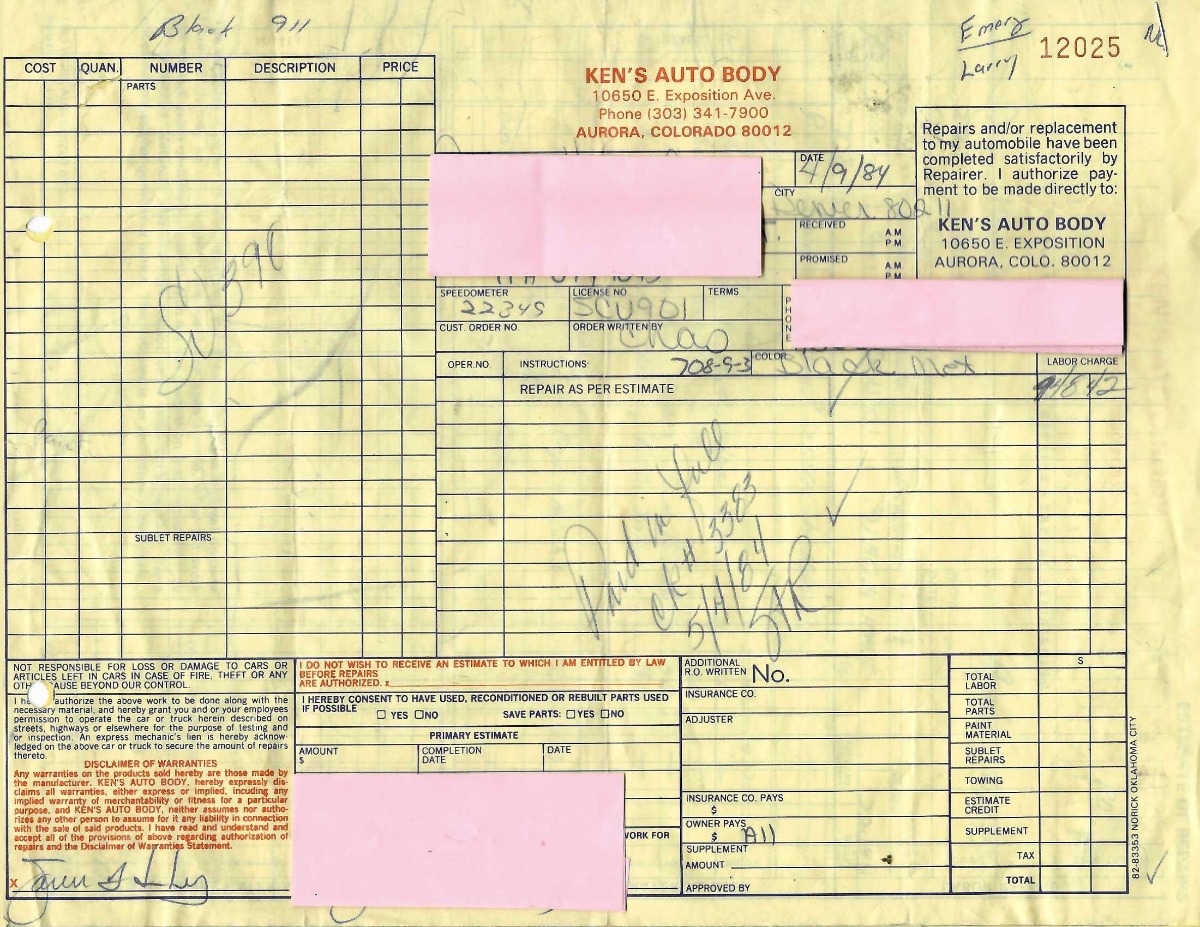 Black 911
Emery
Larry
12025
COST QUAN. NUMBER DESCRIPTION PRICE
PARTS
SUBLET REPAIRS
KEN'S AUTO BODY
10650 E. Exposition Ave.
Phone (303) 341-7900
AURORA, COLORADO 80012
DATE
4/9/84
CITY
Denver 80211
RECEIVED A M P M
PROMISED A M P M
Repairs and/or replacement
to my automobile have been
completed satisfactorily by
Repairer. I authorize pay-
ment to be made directly to:
KEN'S AUTO BODY
10650 E. EXPOSITION
AURORA, COLO. 80012
SPEEDOMETER LICENSE NO TERMS PHONE
22345 SCU901
CUST. ORDER NO. ORDER WRITTEN BY
Chao
OPER.NO. INSTRUCTIONS: 708-9-3 COLOR Black Met LABOR CHARGE
REPAIR AS PER ESTIMATE
Paid in full
CK# 3383
5/4/84
NOT RESPONSIBLE FOR LOSS OR DAMAGE TO CARS OR
ARTICLES LEFT IN CARS IN CASE OF FIRE, THEFT OR ANY
CAUSE BEYOND OUR CONTROL.
I authorize the above work to be done along with the
necessary material, and hereby grant you and or your employees
permission to operate the car or truck herein described on
streets, highways or elsewhere for the purpose of testing and
or inspection. An express mechanic's lien is hereby acknow-
ledged on the above car or truck to secure the amount of repairs
thereto.
DISCLAIMER OF WARRANTIES
Any warranties on the products sold hereby are those made by
the manufacturer. KEN'S AUTO BODY, hereby expressly dis-
claims all warranties, either express or implied, incuding any
implied warranty of merchantability or fitness for a particular
purpose, and KEN'S AUTO BODY, neither assumes nor autho-
rizes any other person to assume for it any liability in connection
with the sale of said products. I have read and understand and
accept all of the provisions of above regarding authorization of
repairs and the Disclaimer of Warranties Statement.
X
I DO NOT WISH TO RECEIVE AN ESTIMATE TO WHICH I AM ENTITLED BY LAW
BEFORE REPAIRS
ARE AUTHORIZED. x
I HEREBY CONSENT TO HAVE USED, RECONDITIONED OR REBUILT PARTS USED
IF POSSIBLE YES NO SAVE PARTS: YES NO
PRIMARY ESTIMATE
AMOUNT COMPLETION DATE
$ DATE
WORK FOR
ADDITIONAL
R.O. WRITTEN No.
INSURANCE CO.
ADJUSTER
INSURANCE CO. PAYS
$
OWNER PAYS
$ All
SUPPLEMENT
AMOUNT
APPROVED BY
S
TOTAL LABOR
TOTAL PARTS
PAINT MATERIAL
SUBLET REPAIRS
TOWING
ESTIMATE CREDIT
SUPPLEMENT
TAX
TOTAL
82-83353 NORICK OKLAHOMA CITY